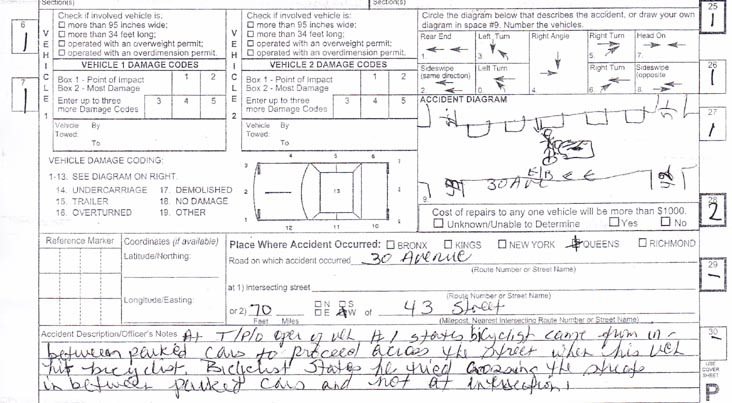 Section(s) Section(s)
Check if involved vehicle is:
☐ more than 95 inches wide;
☐ more than 34 feet long;
☐ operated with an overweight permit;
☐ operated with an overdimension permit.
VEHICLE 1 DAMAGE CODES
Box 1 - Point of impact 1 2
Box 2 - Most Damage
Enter up to three 3 4 5
more Damage Codes
Vehicle By
Towed:
To
VEHICLE 1
Check if involved vehicle is:
☐ more than 95 inches wide;
☐ more than 34 feet long;
☐ operated with an overweight permit;
☐ operated with an overdimension permit.
VEHICLE 2 DAMAGE CODES
Box 1 - Point of impact 1 2
Box 2 - Most Damage
Enter up to three 3 4 5
more Damage Codes
Vehicle By
Towed:
To
VEHICLE 2
Circle the diagram below that describes the accident, or draw your own
diagram in space #9. Number the vehicles.
Rear End Left Turn Right Angle Right Turn Head On
1. 3. 4. 5. 7.
Sideswipe Left Turn Right Turn Sideswipe
(same direction) (opposite
2. 0. 6. 8.
ACCIDENT DIAGRAM
E/B
30 Ave
9.
VEHICLE DAMAGE CODING:
1-13. SEE DIAGRAM ON RIGHT.
14. UNDERCARRIAGE 17. DEMOLISHED
15. TRAILER 18. NO DAMAGE
16. OVERTURNED 19. OTHER
Cost of repairs to any one vehicle will be more than $1000.
☐ Unknown/Unable to Determine ☐ Yes ☐ No
Reference Marker
Coordinates (if available)
Latitude/Northing:
Longitude/Easting:
Place Where Accident Occurred: ☐ BRONX ☐ KINGS ☐ NEW YORK QUEENS ☐ RICHMOND
Road on which accident occurred 30 Avenue
(Route Number or Street Name)
at 1) intersecting street
(Route Number or Street Name)
or 2) 70 ☐ N ☐ S ☐ E W of 43 Street
Feet Miles (Milepost, Nearest Intersecting Route Number or Street Name)
Accident Description/Officer's Notes At T/P/O oper of veh #1 states bicyclist came from in-
between parked cars to proceed across the street when his veh
hit bicyclist. Bicyclist states he tried crossing the street
in between parked cars and not at intersection.
6
1
1
25
1
26
1
27
1
28
2
29
-
30
-
USE
COVER
SHEET
P